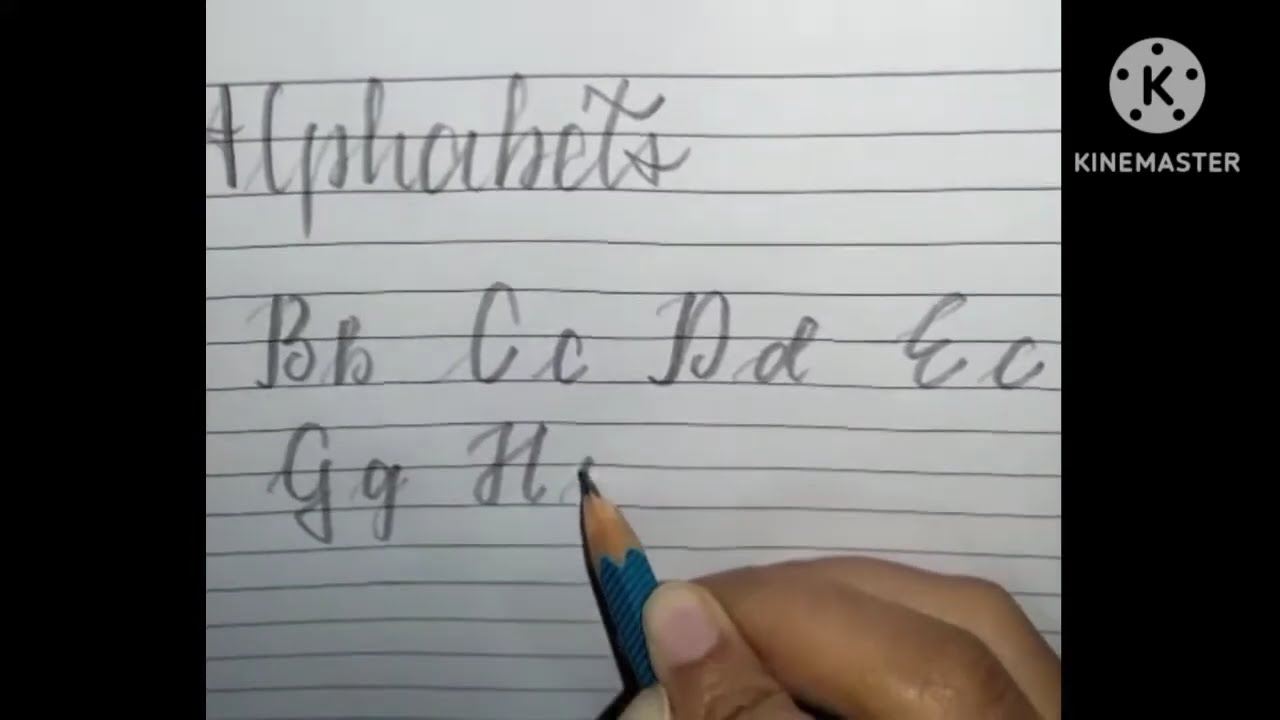 Alphabets
K
KINEMASTER
Bb Cc Dd Ec
Gg H